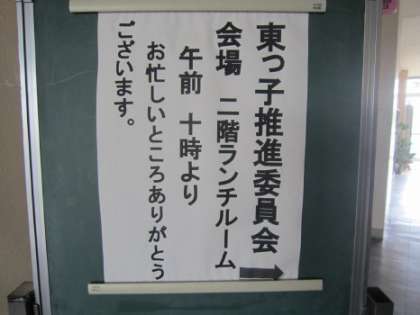 東っ子推進委員会
会場 二階ランチルーム
午前 十時より
お忙しいところありがとう
ございます。